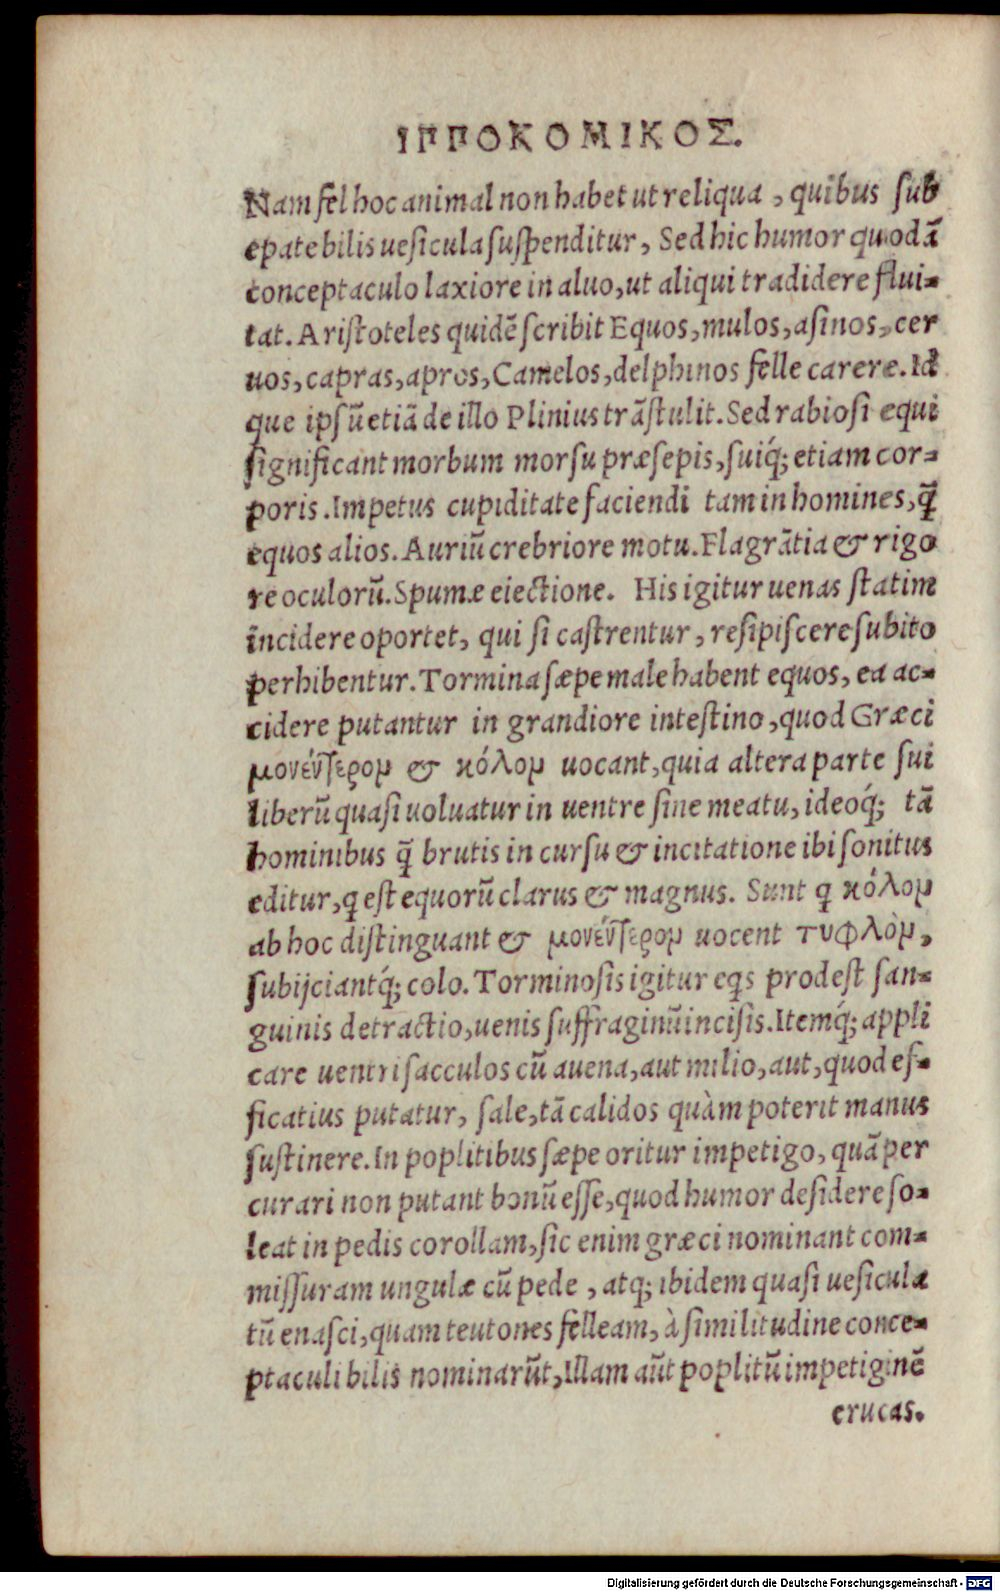 ΙΠΠΟΚΟΜΙΚΟΣ.
Nam fel hoc animal non habet ut reliqua , quibus sub
epate bilis uesicula suspenditur, Sed hic humor quodā
conceptaculo laxiore in aluo, ut aliqui tradidere flui-
tat. Aristoteles quidē scribit Equos, mulos, asinos, cer
uos, capras, apros, Camelos, delphinos felle carere. Id
que ipsū etiā de illo Plinius trāstulit. Sed rabiosi equi
significant morbum morsu præsepis, suiq́; etiam cor-
poris. Impetus cupiditate faciendi tam in homines, q̄
equos alios. Auriū crebriore motu. Flagrātia & rigo
re oculorū. Spumæ eiectione. His igitur uenas statim
incidere oportet, qui si castrentur, resipiscere subito
perhibentur. Tormina sæpe male habent equos, ea ac-
cidere putantur in grandiore intestino, quod Græci
μονέντερον & κόλον uocant, quia altera parte sui
liberū quasi uoluatur in uentre sine meatu, ideoq́; tā
hominibus q̄ brutis in cursu & incitatione ibi sonitus
editur, q est equorū clarus & magnus. Sunt q κόλον
ab hoc distinguant & μονέντερον uocent τυφλὸν,
subijciantq́; colo. Torminosis igitur eqs prodest san-
guinis detractio, uenis suffraginū incisis. Itemq́; appli
care uentri sacculos cū auena, aut milio, aut, quod ef-
ficatius putatur, sale, tā calidos quàm poterit manus
sustinere. In poplitibus sæpe oritur impetigo, quā per
curari non putant bonū esse, quod humor desidere so-
leat in pedis corollam, sic enim græci nominant com-
missuram ungulæ cū pede , atq; ibidem quasi uesicula
tū enasci, quam teutones felleam, à similitudine conce-
ptaculi bilis nominarūt, Illam aūt poplitū impetiginē
erucas.
Digitalisierung gefördert durch die Deutsche Forschungsgemeinschaft - DFG